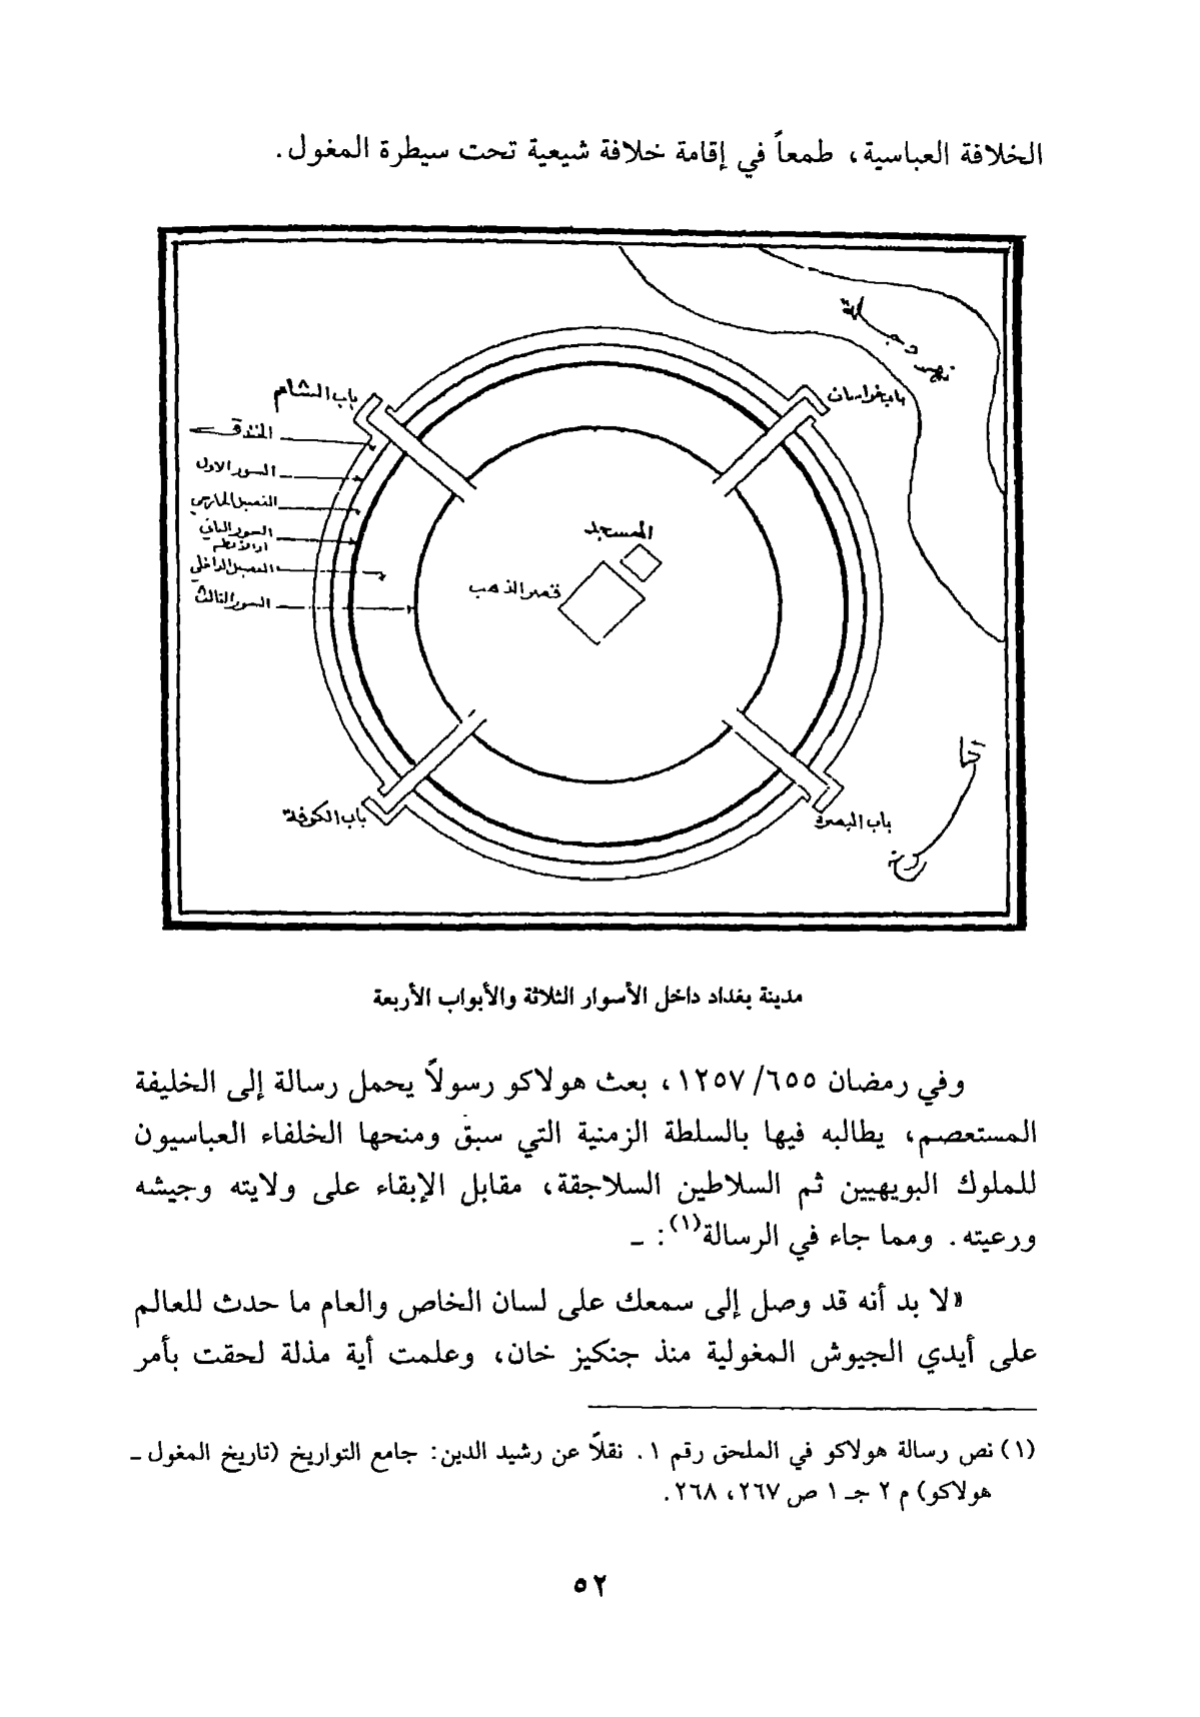 الخلافة العباسية، طمعاً في إقامة خلافة شيعية تحت سيطرة المغول.
نهر دجلة
باب خراسان
باب الشام
الخندق
السور الاول
الفصيل الخارجي
السور الثاني
الفصيل الداخلي
السور الثالث
المسجد
قصر الذهب
باب الكوفة
باب البصرة
مدينة بغداد داخل الأسوار الثلاثة والأبواب الأربعة
وفي رمضان ٦٥٥/ ١٢٥٧، بعث هولاكو رسولاً يحمل رسالة إلى الخليفة
المستعصم، يطالبه فيها بالسلطة الزمنية التي سبق ومنحها الخلفاء العباسيون
للملوك البويهيين ثم السلاطين السلاجقة، مقابل الإبقاء على ولايته وجيشه
ورعيته. ومما جاء في الرسالة(١): ـ
«لا بد أنه قد وصل إلى سمعك على لسان الخاص والعام ما حدث للعالم
على أيدي الجيوش المغولية منذ جنكيز خان، وعلمت أية مذلة لحقت بأمر
(١) نص رسالة هولاكو في الملحق رقم ١. نقلاً عن رشيد الدين: جامع التواريخ (تاريخ المغول ـ
هولاكو) م ٢ جـ ١ ص ٢٦٧، ٢٦٨.
٥٢